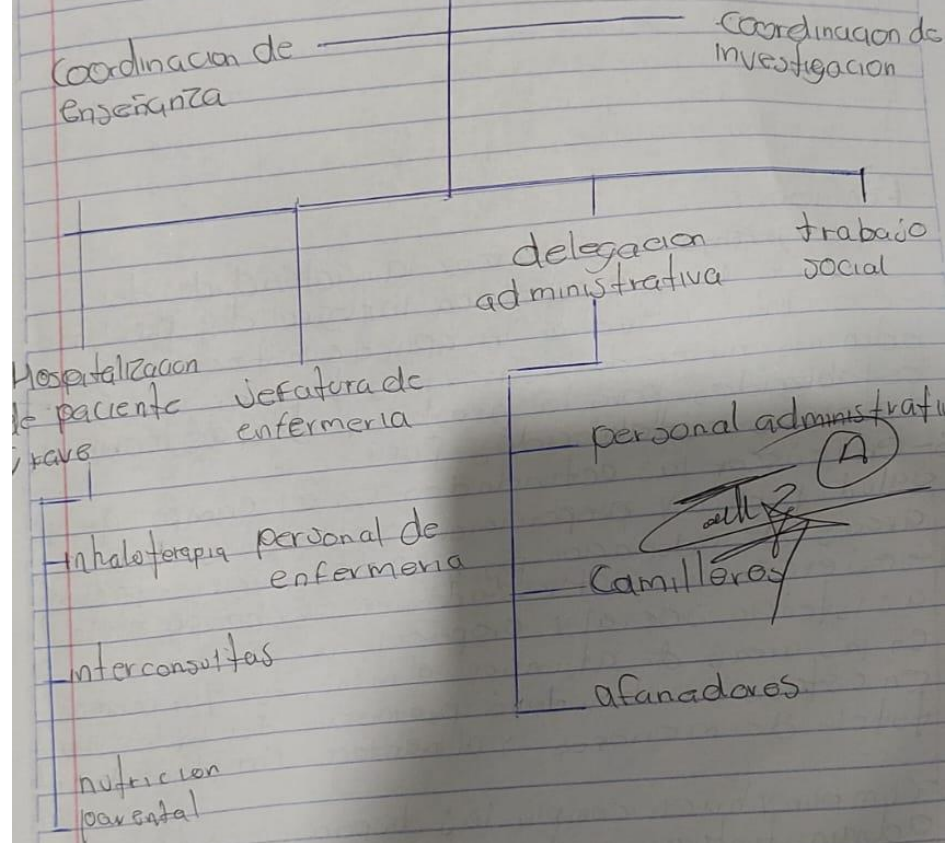 Coordinacion de
enseñanza
Coordinacion de
investigacion
delegacion
administrativa
trabajo
social
Hospitalizacion
de paciente
grave
Jefatura de
enfermeria
personal administrativ
A
Inhaloterapia
personal de
enfermeria
Camilleros
interconsultas
afanadores
nutricion
parental